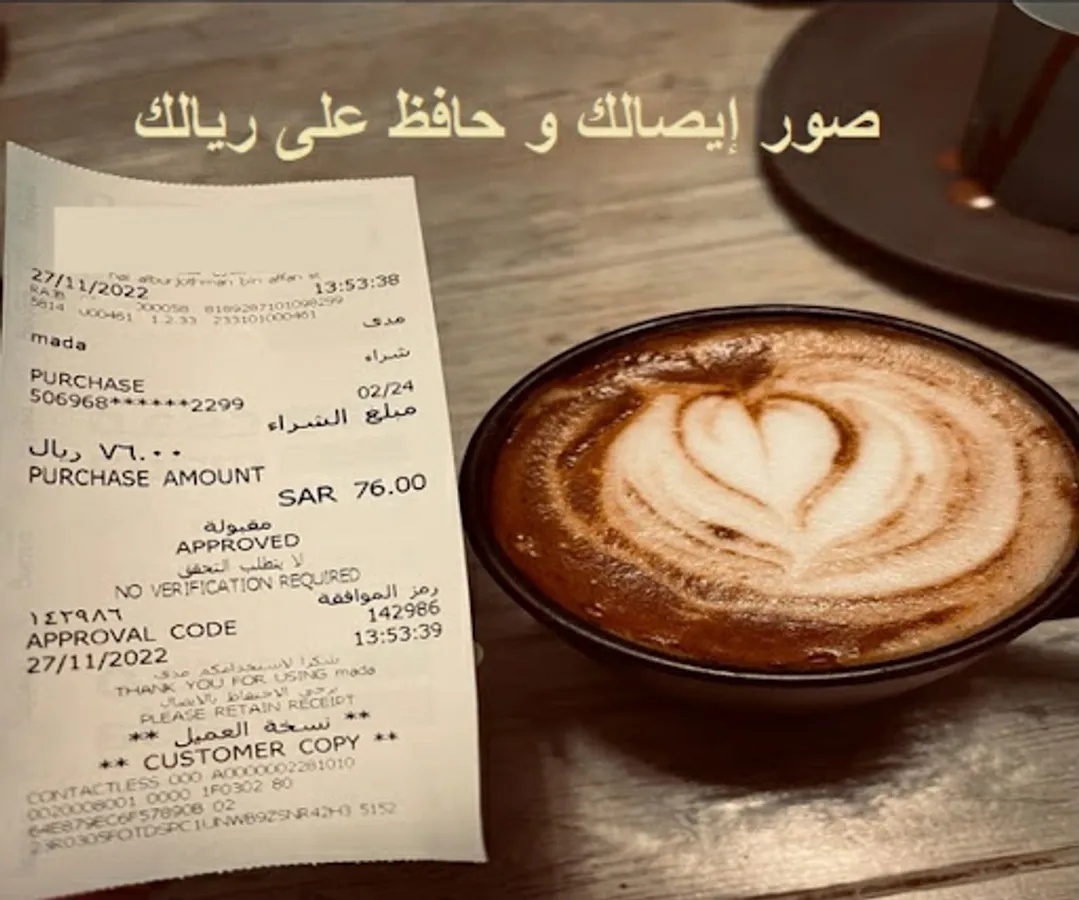 صور إيصالك و حافظ على ريالك
27/11/2022 13:53:38
mada مدى
شراء
PURCHASE 02/24
506968******2299
مبلغ الشراء
٧٦.٠٠ ريال
PURCHASE AMOUNT
SAR 76.00
مقبولة
APPROVED
لا يتطلب التحقق
NO VERIFICATION REQUIRED
رمز الموافقة
١٤٢٩٨٦ 142986
APPROVAL CODE
27/11/2022 13:53:39
شكرا لاستخدامكم مدى
THANK YOU FOR USING mada
يرجى الاحتفاظ بالايصال
PLEASE RETAIN RECEIPT
** نسخة العميل **
** CUSTOMER COPY **
CONTACTLESS 000 A0000002281010
0020008001 0000 1F0302 80
02
5152